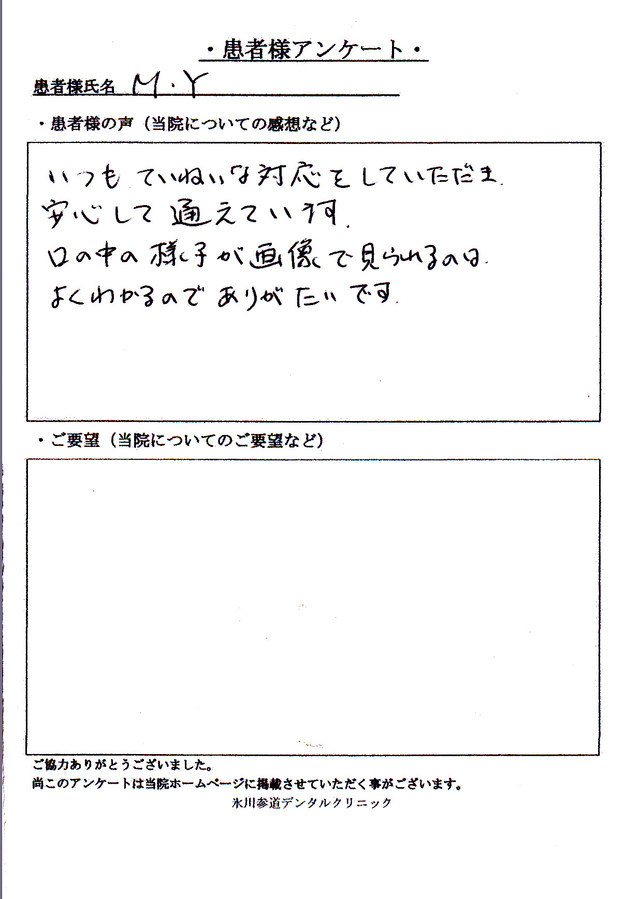 ・患者様アンケート・
患者様氏名 M.Y
・患者様の声（当院についての感想など）
いつもていねいな対応をしていただき、
安心して通えています。
口の中の様子が画像で見られるのは、
よくわかるのでありがたいです。
・ご要望（当院についてのご要望など）
ご協力ありがとうございました。
尚このアンケートは当院ホームページに掲載させていただく事がございます。
氷川参道デンタルクリニック